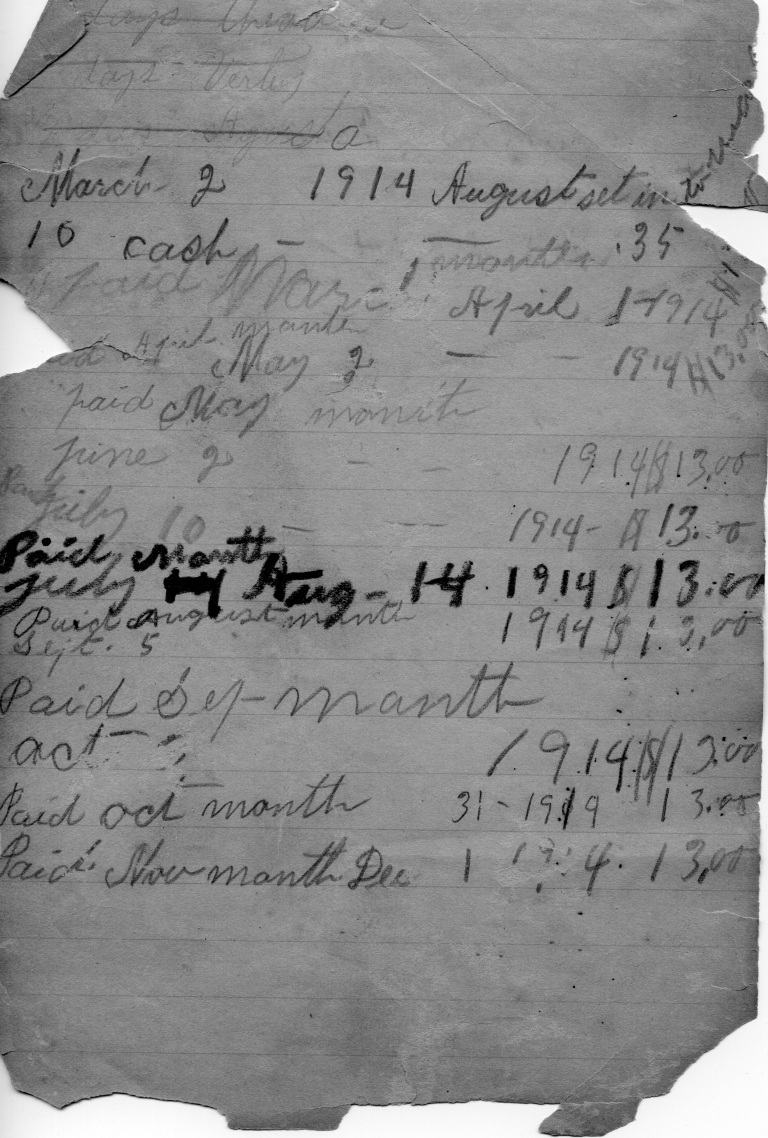 days Verley
March 2 1914 August set in to
10 cash - 1 month .35
paid Mar April 1-1914 $1
April month
May 2 - - 1914 $13.00
paid May month
June 2 - - 1914 $13,00
Paid
july 10 - - 1914- $13.00
Paid Month
july 14 Aug- 14 1914 $13.00
Paid August month
Sept. 5 1914 $13,00
Paid Sep-manth
oct 1914 $13.00
Paid oct month 31-1919 13.00
Paid Nov manth Dec 1 1914. 13,00